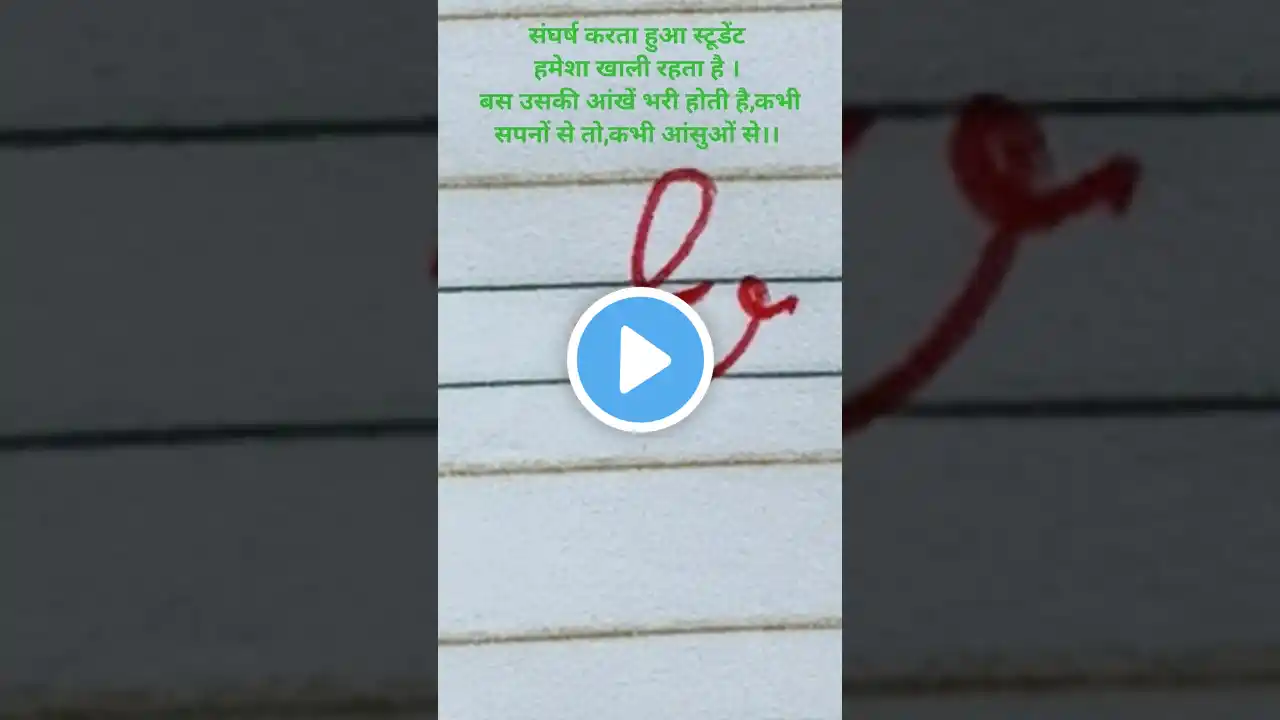 संघर्ष करता हुआ स्टूडेंट
हमेशा खाली रहता है ।
बस उसकी आंखें भरी होती है,कभी
सपनों से तो,कभी आंसुओं से।।